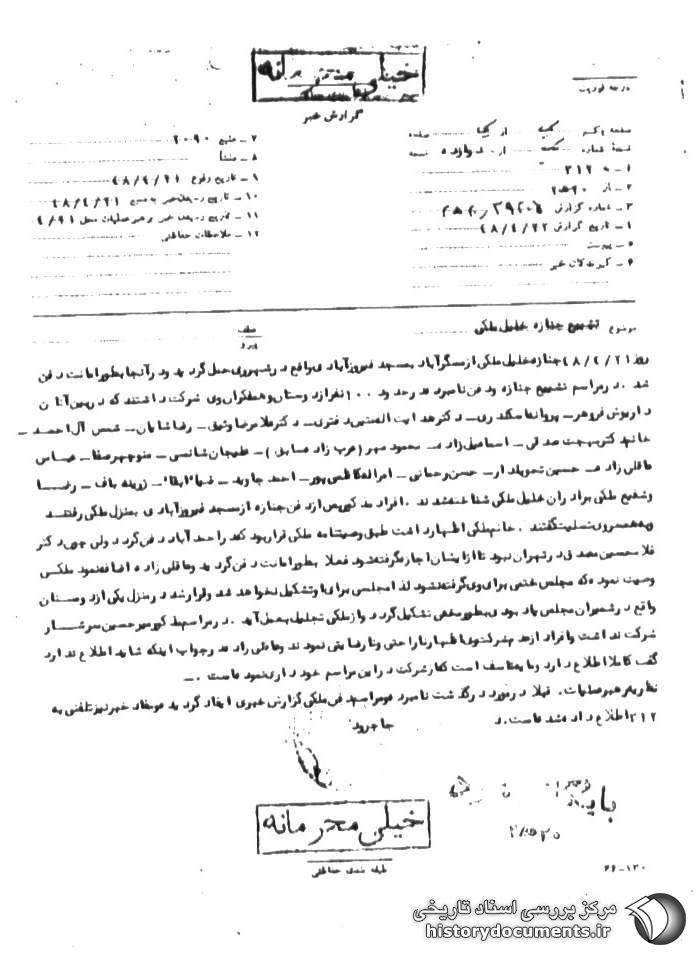 خیلی محرمانه
گزارش خبر
درجه فوریت
صفحه یکم از یک صفحه
نسخه شماره یک از دوازده نسخه
۱ - به ۳۱۲
۲ - از ۲۰ه۲۰
۳ - شماره گزارش
۴ - تاریخ گزارش ۴۸/۴/۲۲
۵ - پیوست
۶ - گیرندگان خبر
۷ - منبع ۲۰۹۰
۸ - منشأ
۹ - تاریخ وقوع ۴۸/۴/۲۱
۱۰ - تاریخ رسیدن خبر به منبع ۴۸/۴/۲۱
۱۱ - تاریخ رسیدن خبر به رهبر عملیات محل
۱۲ - ملاحظات حفاظتی
موضوع تشییع جنازه خلیل ملکی
عطف
پیرو
روز ۴۸/۴/۲۱ جنازه خلیل ملکی از مسگرآباد به مسجد فیروزآبادی واقع در شهرری حمل گردید و در آنجا بطور امانت دفن
شد. در مراسم تشییع جنازه و دفن نامبرده در حدود ۱۰۰ نفر از دوستان و همفکران وی شرکت داشتند که در بین آنان
داریوش فروهر - پروانه اسکندری - دکتر هدایت اله متین دفتری - دکتر غلامرضا وثیق - رضا شایان - شمس آل احمد -
خانم دکتر بهجت صدقی - اسماعیل زاده - محمود مهر (عرب زاده سابق) - علیجان شانسی - منوچهر صفا - عباس
عاقلی زاده - حسین تحویلدار - حسن رحمانی - امراله کاظمی پور - احمد جاوید - ضیاء ابقاء - زرینه باف - رضا
و شفیع ملکی برادران خلیل ملکی شناخته شدند. افراد مذکور پس از دفن جنازه از مسجد فیروزآبادی به منزل ملکی رفتند
و به همسر وی تسلیت گفتند. خانم ملکی اظهار داشت طبق وصیتنامه ملکی قرار بود که در احمدآباد دفن گردد ولی چون دکتر
غلامحسین مصدق در تهران نبود تا از ایشان اجازه گرفته شود فعلا بطور امانت دفن گردید و عاقلی زاده اضافه نمود ملکی
وصیت نموده که مجلس ختمی برای وی گرفته نشود لذا مجلسی برای او تشکیل نخواهد شد و قرار شد در منزل یکی از دوستان
واقع در شمیران مجلس یادبودی بطور مخفی تشکیل گردد و از ملکی تجلیل به عمل آید. در مراسم مذکور میرحسین سرشار
شرکت نداشت و افراد از عدم شرکت وی اظهار ناراحتی و نارضایتی نمودند و عاقلی زاده در جواب اینکه شاید اطلاع ندارد
گفت کاملا اطلاع دارد و مایه تاسف است که از شرکت در این مراسم خودداری نموده است.
نظریه رهبر عملیات. قبلا در مورد درگذشت نامبرده و مراسم دفن ملکی گزارش خبری ایفاد گردید و مفاد خبر نیز تلفنی به
۳۱۲ اطلاع داده شده است.
جاجرود
خیلی محرمانه
طبقه بندی حفاظتی
۳۶-۱۲۰
مرکز بررسی اسناد تاریخی
historydocuments.ir